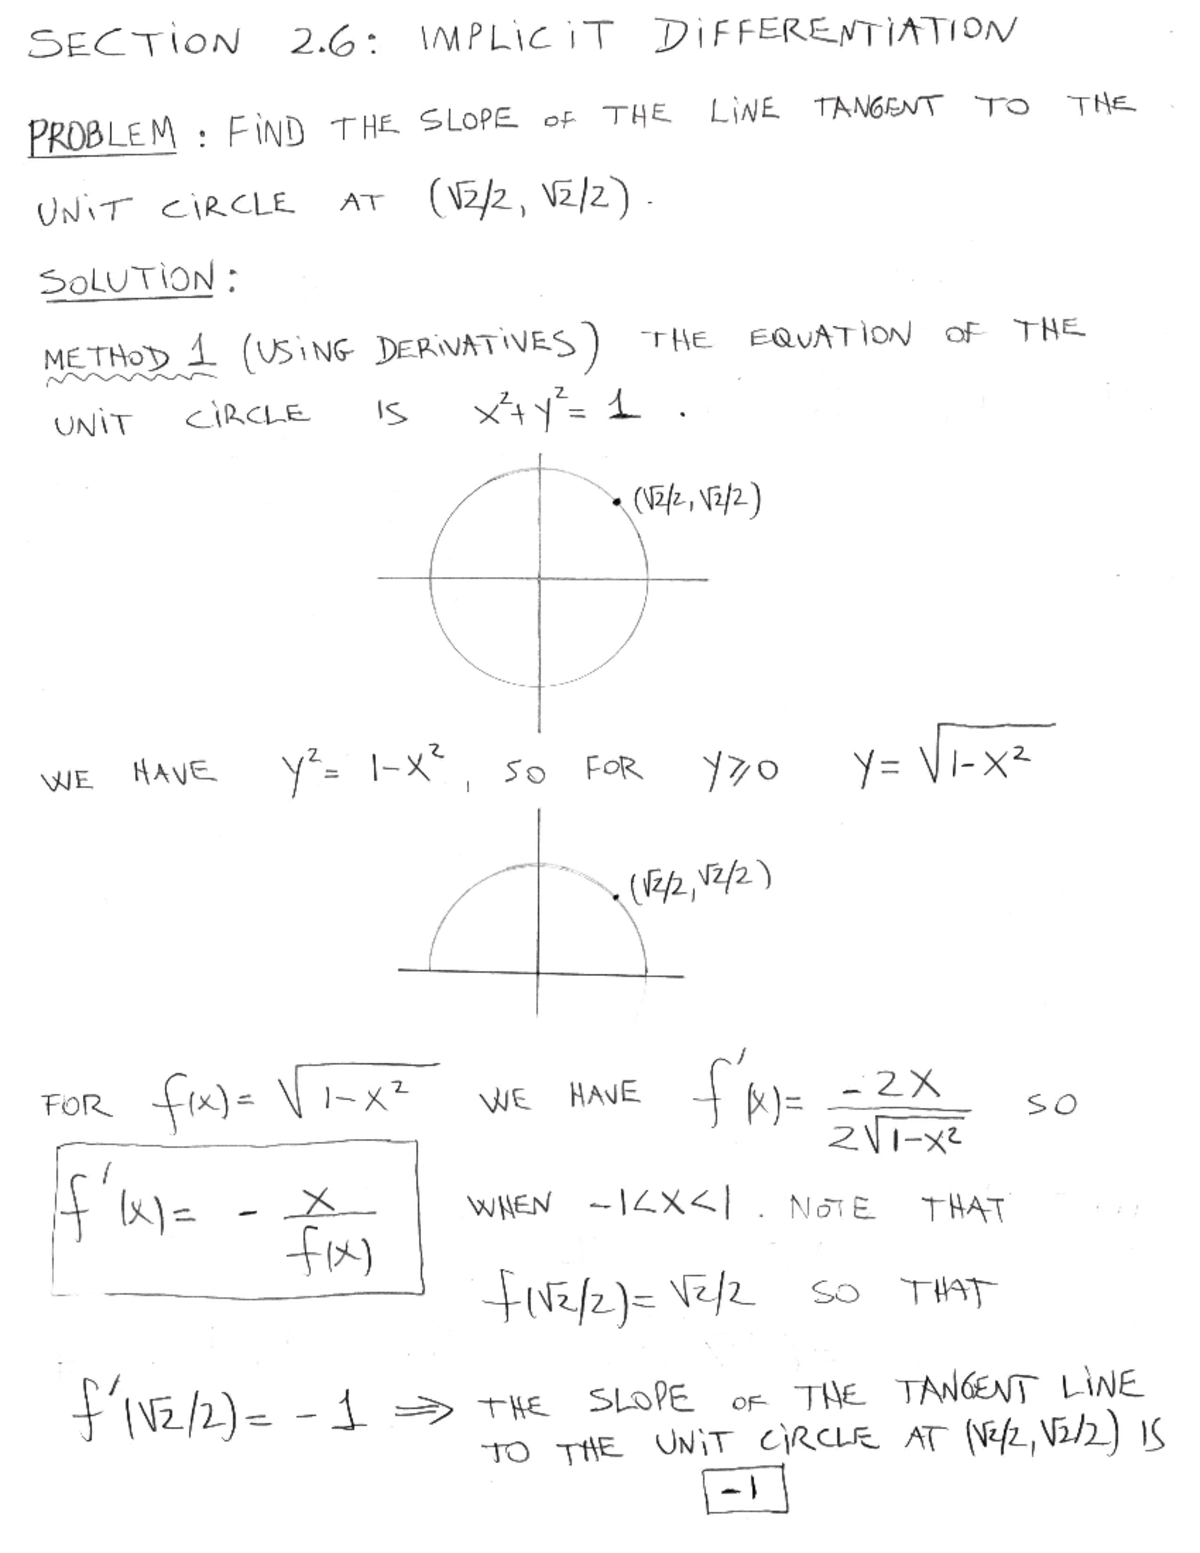 SECTION 2.6: IMPLICIT DIFFERENTIATION
PROBLEM: FIND THE SLOPE OF THE LINE TANGENT TO THE
UNIT CIRCLE AT (√2/2, √2/2).
SOLUTION:
METHOD 1 (USING DERIVATIVES) THE EQUATION OF THE
UNIT CIRCLE IS x²+y²=1.
(√2/2, √2/2)
WE HAVE y²=1-x², SO FOR y⩾0 y=√(1-x²)
(√2/2, √2/2)
FOR f(x)=√(1-x²) WE HAVE f'(x)= -2x/(2√(1-x²)) SO
f'(x)= - x/f(x) WHEN -1<x<1. NOTE THAT
f(√2/2)=√2/2 SO THAT
f'(√2/2)=-1 ⇒ THE SLOPE OF THE TANGENT LINE
TO THE UNIT CIRCLE AT (√2/2, √2/2) IS
-1